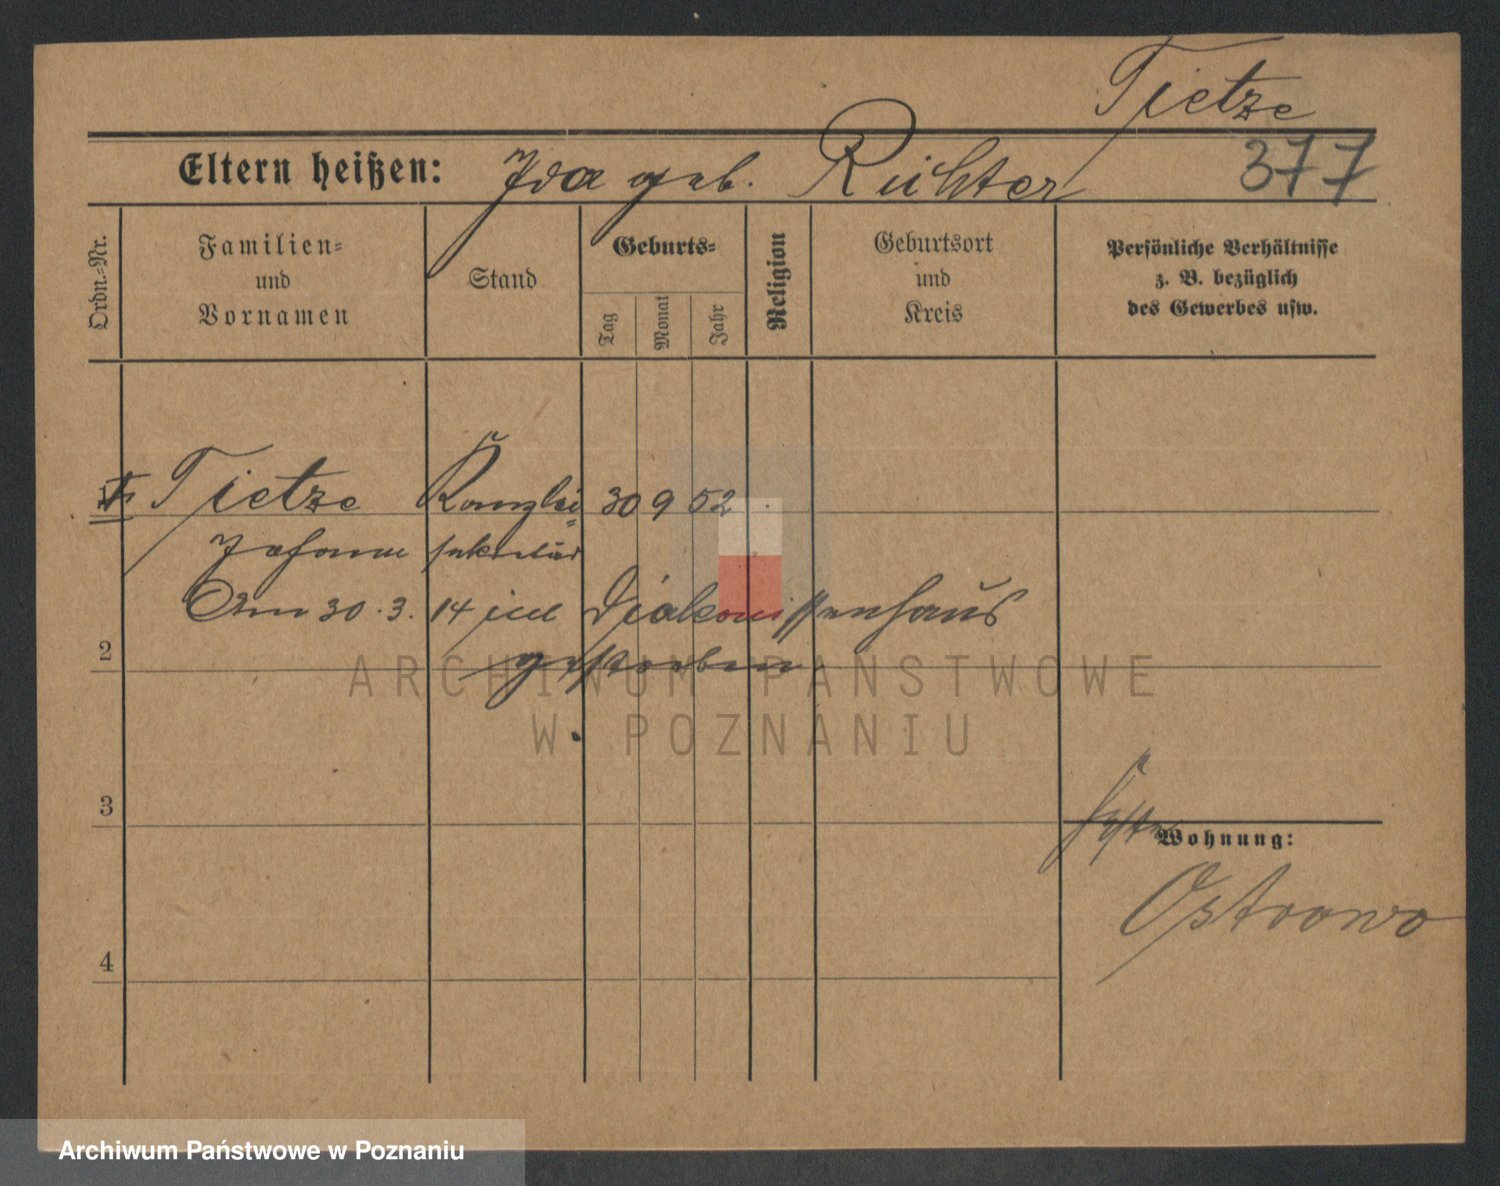 Tietze
Eltern heißen: Ida geb. Richter 377
Ordn.-Nr.
Familien-
und
Vornamen
Stand
Geburts-
Tag
Monat
Jahr
Religion
Geburtsort
und
Kreis
Persönliche Verhältnisse
z. B. bezüglich
des Gewerbes usw.
Tietze Kanzlei 30 9 52
Johann sekretär
Am 30.3.14 im Diakonissenhaus
2
gestorben
ARCHIWUM PAŃSTWOWE
W POZNANIU
3
Wohnung:
Ostrowo
4
Archiwum Państwowe w Poznaniu